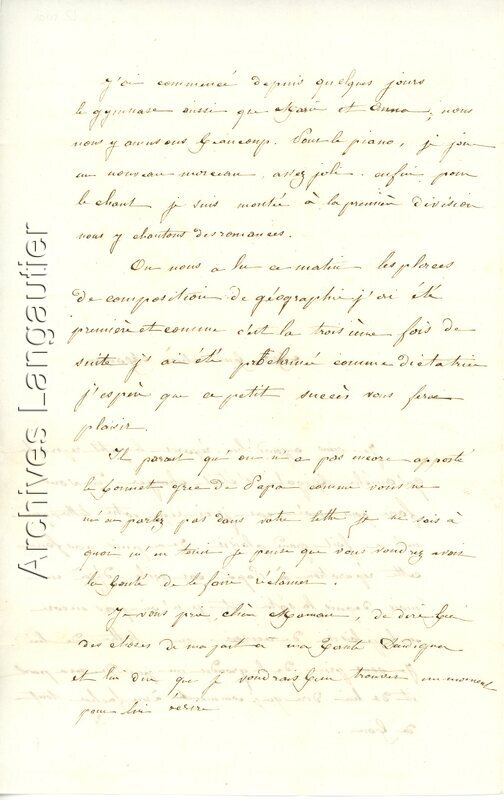 J'ai commencé depuis quelques jours
le gymnase aussi que Marie et Anna, nous
nous y amusons beaucoup. Pour le piano, je joue
un nouveau morceau assez joli. enfin pour
le chant je suis montée à la première division
nous y chantons des romances.
On nous a lu ce matin les places
de composition de géographie j'ai été
première et comme c'est la troisième fois de
suite j'ai été proclamée comme dictatrice
j'espère que ce petit succès vous fera
plaisir
Il parait qu'on n'a pas encore apporté
le bonnet grec de Papa comme vous ne
m'en parlez pas dans votre lettre je ne sais à
quoi m'en tenir je pense que vous voudrez avoir
la bonté de le faire réclamer.
Je vous prie, chère Maman, de dire bien
des choses de ma part à ma tante
et lui dire que je voudrais bien trouver un moment
pour lui écrire
Archives Langautier